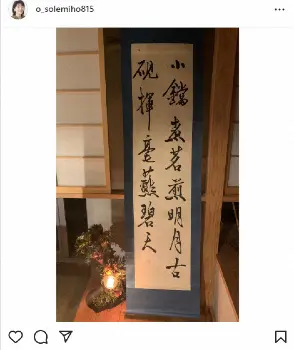 o_solemiho815
小鐺煮茗煎明月古
硯揮毫蘸碧天